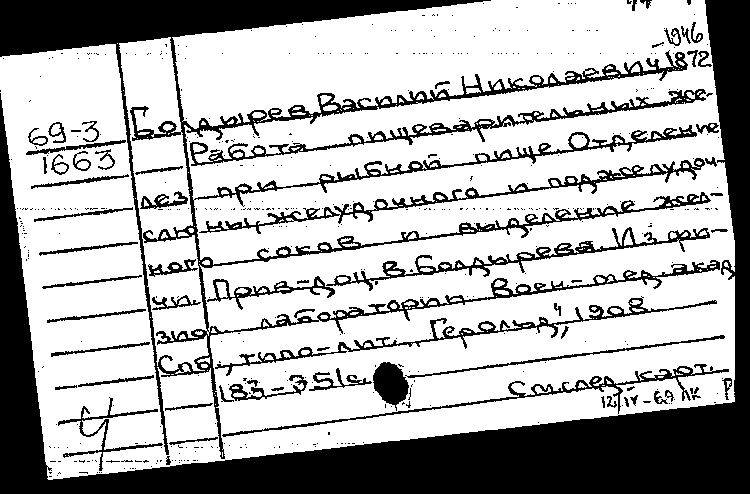 -1946
Болдырев, Василий Николаевич, 1872
69-3
1663
Работа пищеварительных же-
лез при рыбной пище. Отделение
слюны, желудочного и поджелудоч-
ного соков и выделение жел-
чи. Прив-доц. В. Болдырева. Из фи-
зиол. лаборатории Воен-мед. акад.
Спб., типо-лит. "Герольд", 1908.
183-351с.
См. след. карт.
12/IV-69 ЛК Р
Ч